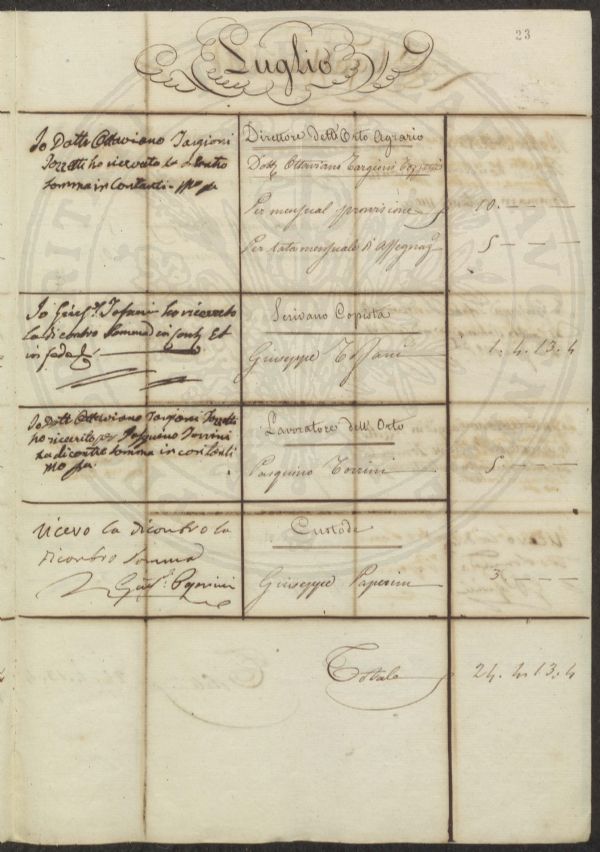 23
Luglio
Io Dott Ottaviano Targioni
Tozzetti ho ricevuto la di contro
somma in Contanti
Direttore dell'Orto Agrario
Dott. Ottaviano Targioni Tozzetti
Per mensual provvisione 10. — — —
Per rata mensuale di Assegnaz. 5 — — —
Io Gius. Tofani ho ricevuto
la di contro Somma
in fede
Scrivano Copista
Giuseppe Tofani 1. 4. 13. 4
Io Dott Ottaviano Targioni Tozzetti
ho ricevuto per Pasquino Torrini
la di contro somma in contanti
Lavoratore dell'Orto
Pasquino Torrini 5 — — —
ricevo la dicontro la
dicontro somma
Gius. Paperini
Custode
Giuseppe Paperini 3 — — —
Totale 24. 4. 13. 4